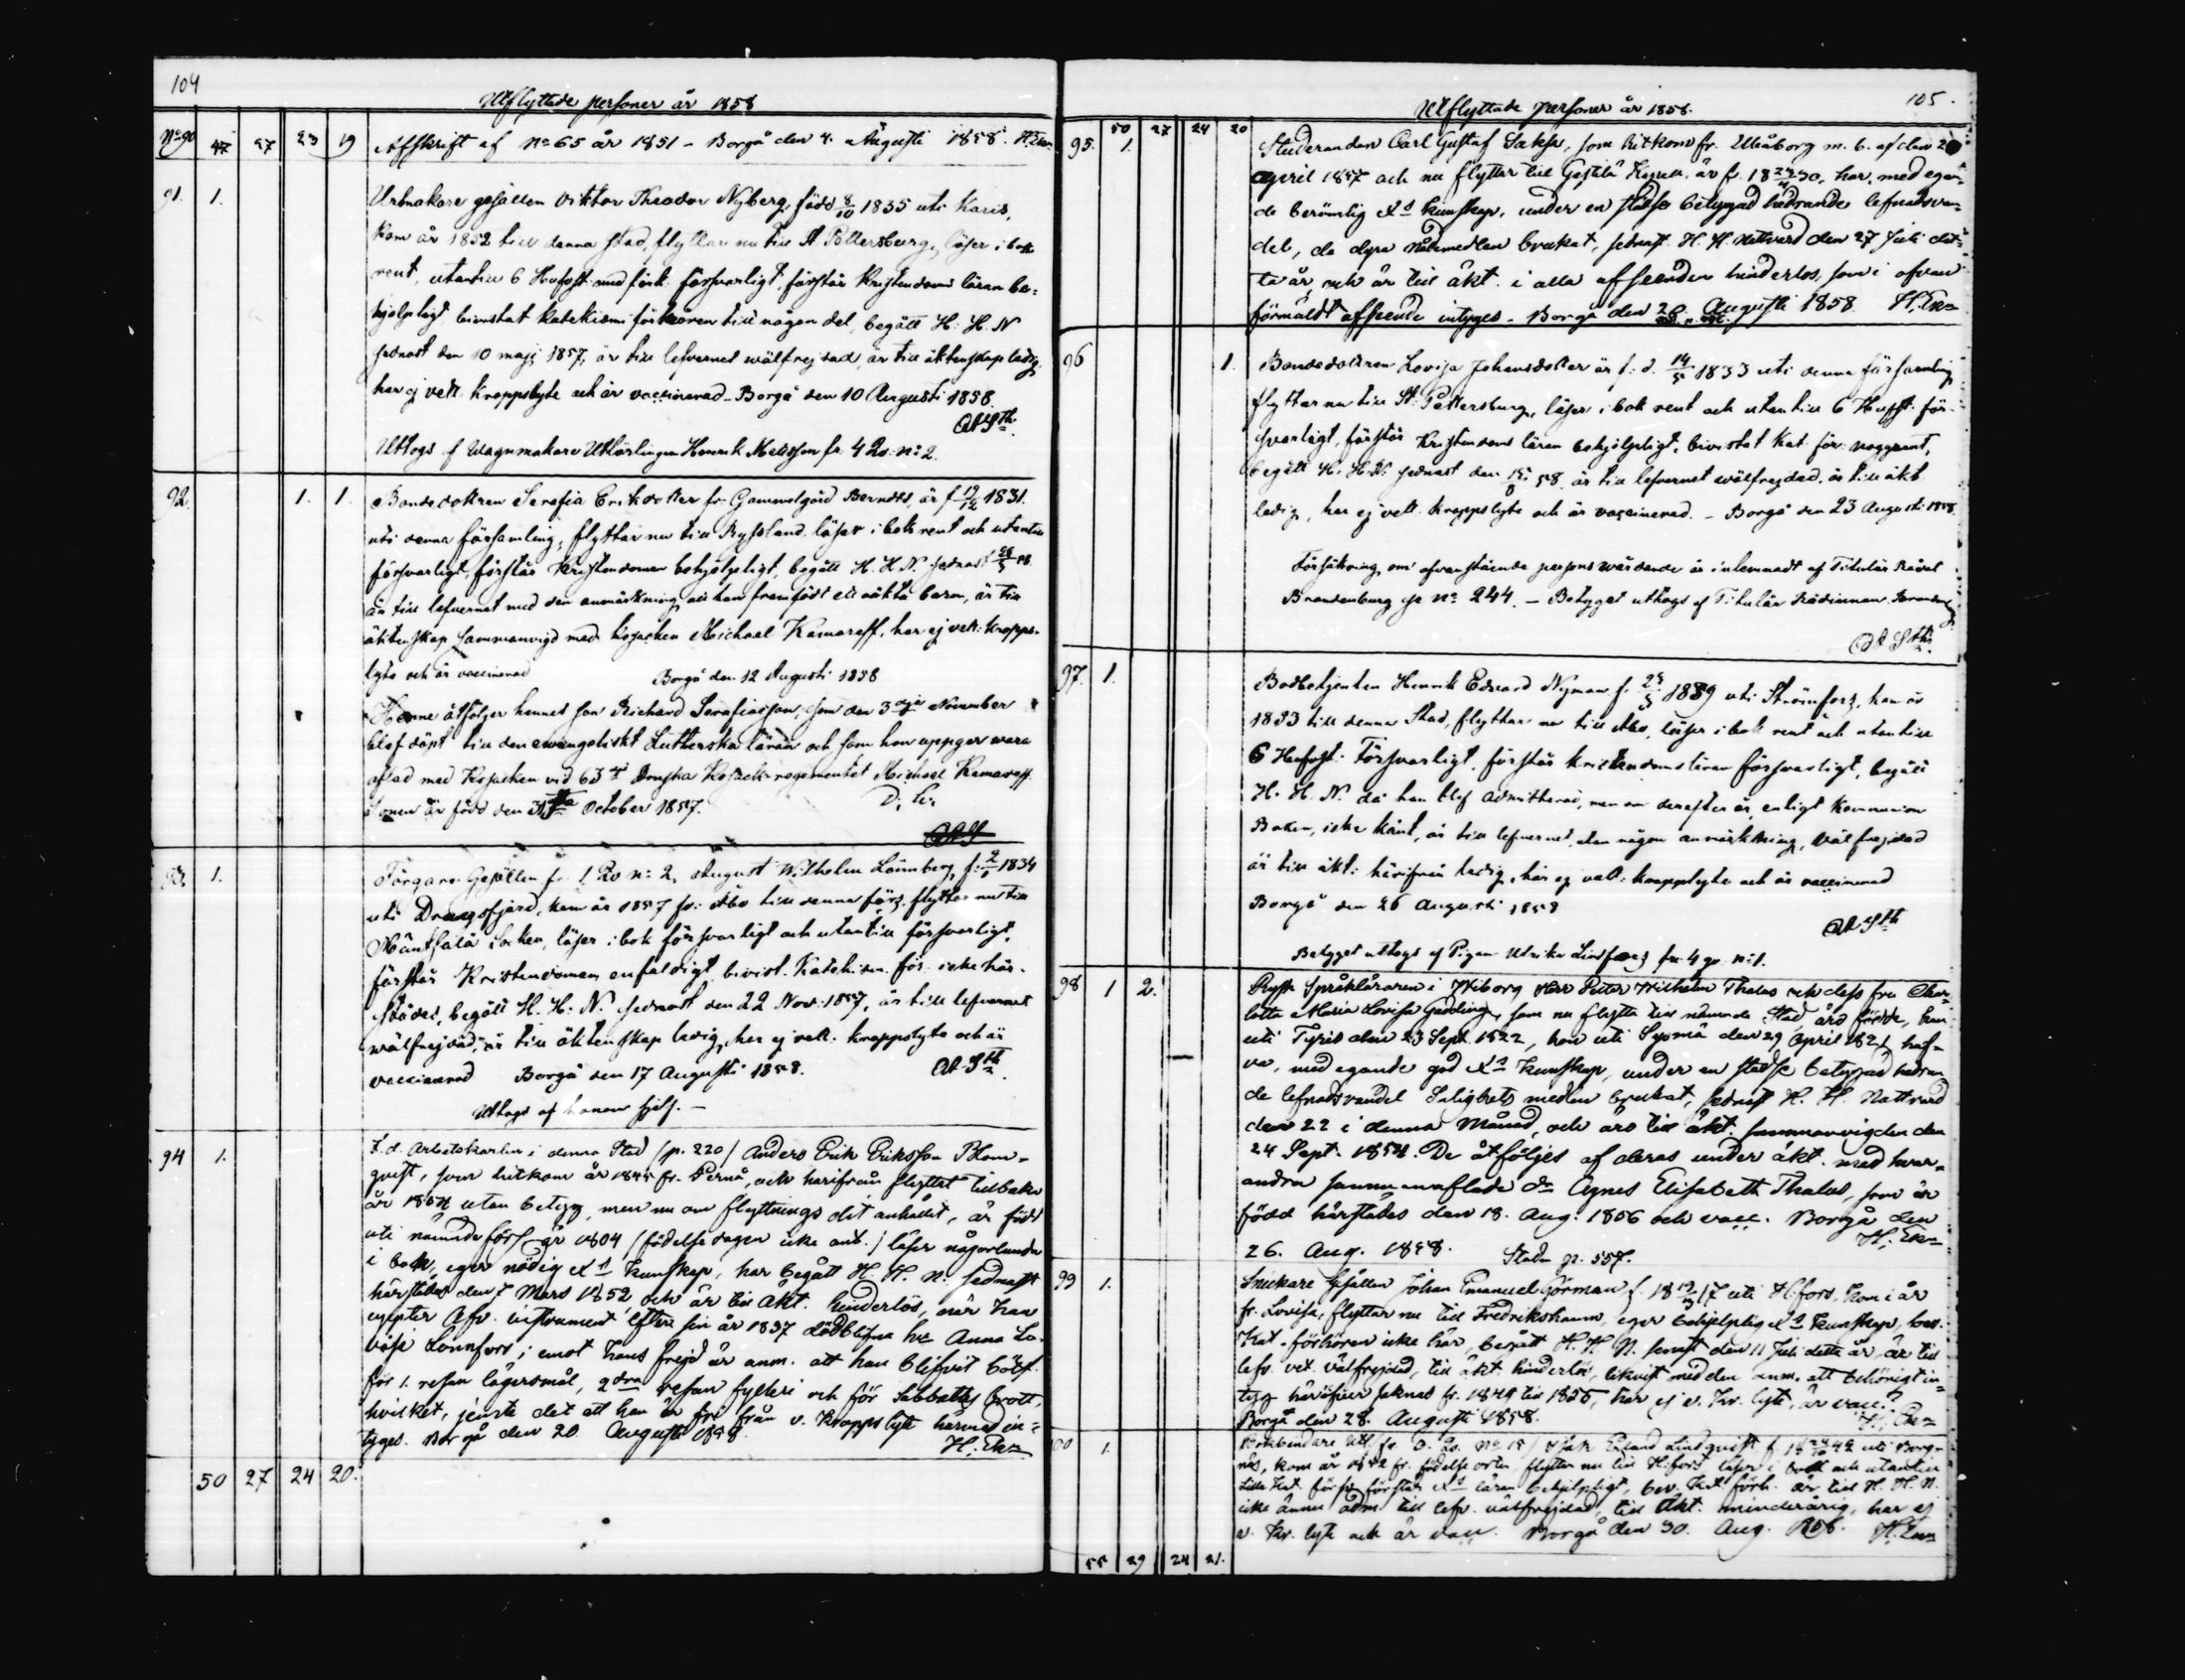 104
Utflyttade personer år 1858
No 90 47 27 23 19 Afskrift af No 65 år 1851 - Borgå den 4. Augusti 1858.
91. 1. Urmakare gesällen Viktor Theodor Nyberg, född 8/10 1835 uti Karis,
kom år 1852 till denna stad, flyttar nu till St Pettersburg, läser i bok
rent, utantill 6 Hufvst med förk. försvarligt, förstår Kristendoms läran be=
hjelpligt, bevistat Katekismi förhören till någon del, begått H. H. N
sednast den 10 maji 1857, är till lefvernet wälfrejdad, är till äktenskap ledig,
har ej vett. kroppslyte och är vaccinerad - Borgå den 10 Augusti 1858.
Uttogs af Wagnmakare Henrik fr. 4 Qv. n: 2.
92. 1. 1. Bondedottren Serafia Eriksdotter fr. Gammelgård Berndts, är f. 19/12 1831.
uti denna församling, flyttar nu till Ryssland läser i bok rent och utantill
försvarligt, förstår Kristendomen behjelpligt, begått H. H. N. sednast
är till lefvernet med den anmärkning att hon framfödt ett oäkta barn, är till
äktenskap sammanvigd med kosacken Michael Kamaroff, har ej vett. kropps-
lyte och är vaccinerad Borgå den 12 Augusti 1858
Henne åtföljer hennes son Richard Serafiasson, som den 3 November
blef döpt till den evangeliskt Lutherska läran och som hon uppger vara
aflad med Kosacken vid 63 Donska Kosack-regementet Michael Kamaroff
är född den October 1857.
93. 1. Färgare Gesällen fr. 1 Qv n: 2, August Wilhelm Lönnberg, f. 1834
uti Dragsfjärd, kom år 1857 fr. Åbo till denna förs. flyttar nu till
Mäntsälä Socken, läser i bok försvarligt och utantill försvarligt,
förstår Kristendomen enfaldigt, bevist. Katekism. för. icke här-
städes, begått H. H. N. sednast den 22 Nov. 1857, är till lefvernet
wälfrejdad, är till äktenskap ledig, har ej vett. kroppslyte och är
vaccinerad Borgå den 17 Augusti 1858.
Uttogs af honom sjelf. -
94 1. F. d. Arbetskarlen i denna Stad (p. 220) Anders Erik Eriksson Blom-
qvist, som hitkom år 1845 fr. Pernå, och härifrån flyttat tillbaka
år 1854 utan betyg, men nu om flyttnings dit anhållit, är född
uti nämnde förs. år 1804 (födelse dagen icke ant.) läser någorlunda
i bok, eger nödig kunskap, har begått H. H. N. sednast
härstädes den 7 Mars 1852 och är till äkt. hinderlös, när han
uppter Afv. instrument efter sin år 1837 dödblifne hu Anna Lo-
visa Lönnfors; emot hans frejd är anm. att han blifvit böt.
för 1. resan lägersmål, 2dra resan fylleri och för Sabbaths brott,
hvilket, jemte det att han är fri från v. kropps lyte härmed in-
tyges. Borgå den 20 Augusti 1858.
50 27 24 20.
Utflyttade personer år 1858. 105.
50 27 24 20
95. 1. Studeranden Carl Gustaf som hitkom fr. Uleåborg m. b. af den
april 1857 och nu flyttar till är f. 18 30, har, med egan-
de berömlig kunskap, under en städse betygad hedrande lefnadsvan-
del, de dyra nådemedlen brukat, sednast H. H. Nattvard den 27 Juli det-
ta år, och är till äkt. i alla afseenden hinderlös, som i ofvan
förmäldt afseende intyges - Borgå den 20 Augusti 1858.
96 1. Bondedottren Lovisa Johansdotter är f. d. 14/5 1833 uti denna församling,
flyttar nu till St. Pettersburg, läser i bok rent och utantill 6 Hufvst. för-
svarligt, förstår Kristendoms läran behjelpligt, bivistat Kat. för. noggrant,
begått H. H. N. sednast den 15/8 58, är till lefvernet wälfrejdad, är till äkt.
ledig, har ej vett. kroppslyte och är vaccinerad. - Borgå den 23 Augusti 1858
Försäkring om ofvanstående persons wårdande är inlemnadt af Titulär Rådet
Brandenburg No 244. - Betyget uttogs af Titulär Rådinnan
97. 1. Bodbetjenten Henrik Edvard Nyman f. 1839 uti Strömfors, kom år
1853 till denna Stad, flyttar nu till Åbo, läser i bok rent och utantill
6 Hufvst: försvarligt, förstår kristendoms läran försvarligt, begått
H. H. N. då han blef admitterad, men om derefter är, enligt Kommunion
Boken, icke känt, är till lefvernet, utan någon anmärkning, välfrejdad
är till äkt: härifrån ledig, har ej vett: kroppslyte och är vaccinerad
Borgå den 26 Augusti 1858
Betyget uttogs af Pigan Ulrika Lindfors fr. 4 qv. n: 1.
98 1 2. Ryske Språkläraren i Wiborg Herr Petter Wilhelm Thalus och dess fru Char-
lotta Maria Lovisa som nu flytta till nämnde Stad, äro födde, han
uti den 23 Sept. 1822, hon uti Sysmä den 29 April 1821, haf-
va, med egande god kunskap, under en städse betygad hedran-
de lefnadsvandel Salighets medlen brukat, sednast H. H. Nattvard
den 22 i denna Månad, och äro till äkt. sammanvigden den
24 Sept. 1854. De åtföljes af deras under äkt. med hvar-
andra sammanaflade dr Agnes Elisabeth Thalus, som är
född härstädes den 18. Aug. 1856 och vacc. Borgå den
26. Aug. 1858. Staden p. 557.
99 1. Snickare Gesällen Johan Emanuel f. 18 17 uti H:fors, kom i år
fr. Lovisa, flyttar nu till Fredrikshamn, eger behjelplig kunskap, bev.
Kat. förhören icke här, begått H. H. N. senast den 11 Juli detta år, är till
lefv. vet. välfrejdad, till äkt. hinderlös, likväl med den anm. att behörigt in-
tyg häröfver saknas fr. 1849 till 1856, har ej v. kr. lyte, är vacc.
Borgå den 28. Augusti 1858.
100 1. Bokbindare fr. 3. Qv. No 15 Isak Erland Lindqvist f. 18 42 uti Borg-
näs, kom år fr. födelse orten, flyttar nu till H:fors läser i bok och utantill
Lilla Kat. försv. förstår läran behjelpligt, bev. Kat. förh. är till H. H. N.
icke ännu adm. till lefv. välfrejdad, till äkt. minderårig, har ej
v. kr. lyte och är vacc. Borgå den 30. Aug.
55 29 24 21.